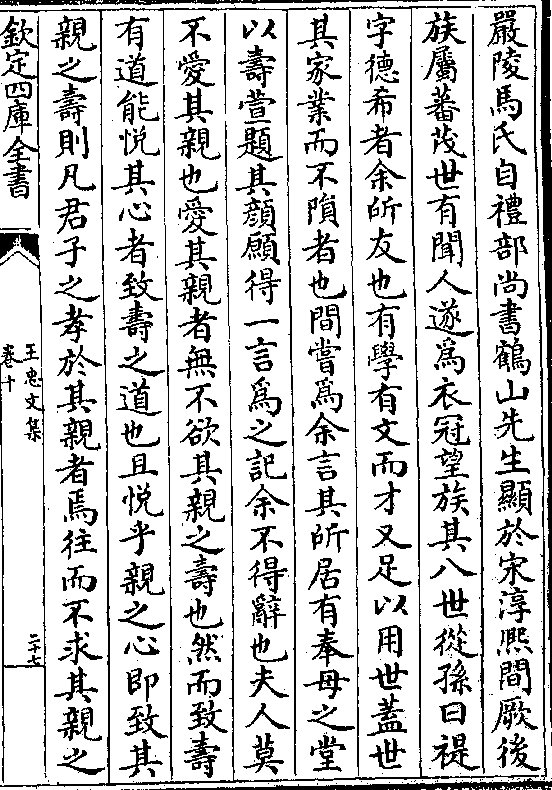 嚴陵馬氏自禮部尚書鶴山先生顯於宋淳熙間厥後
族屬蕃茂世有聞人遂為衣冠望族其八世從孫曰禔
字德希者余所友也有學有文而才又足以用世蓋世
其家業而不隕者也間嘗為余言其所居有奉母之堂
以壽萱題其顔願得一言為之記余不得辭也夫人莫
不愛其親也愛其親者無不欲其親之壽也然而致壽
有道能悦其心者致壽之道也且悦乎親之心即致其
親之壽則凡君子之孝於其親者焉往而不求其親之
欽定四庫全書
王忠文集
卷十
二十七